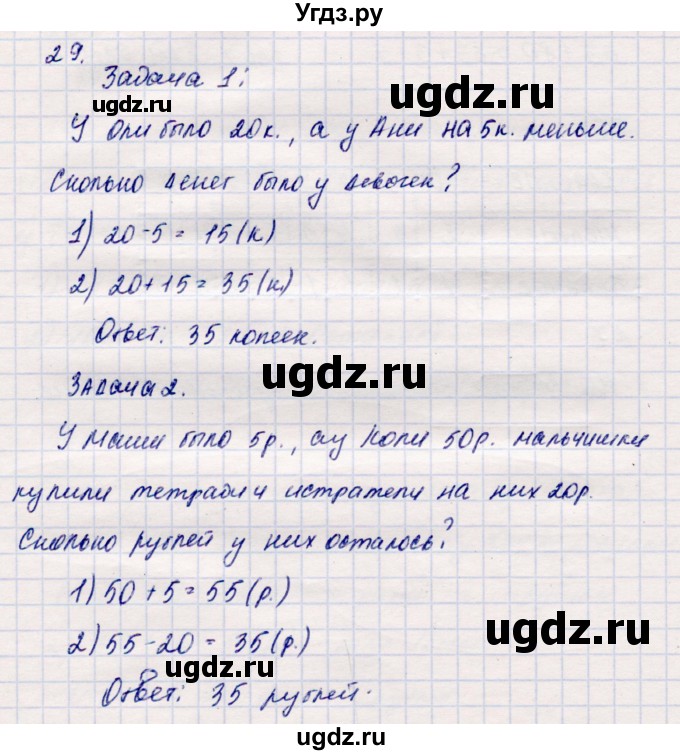 Угдз.ру
29.
Задача 1:
ugdz.ru
У Оли было 20к., а у Ани на 5к. меньше.
Сколько денег было у девочек?
1) 20-5 = 15 (к)
ugdz.ru
2) 20+15 = 35 (к)
Ответ: 35 копеек.
ugdz.ru
Задача 2.
У Маши было 5р., а у Коли 50р. мальчишки
купили тетради и истратели на них 20р.
ugdz.ru
Сколько рублей у них осталось?
1) 50 + 5 = 55 (р.)
ugdz.ru
2) 55-20 = 35 (р.)
ugdz.ru
Ответ: 35 рублей.
ugdz.ru